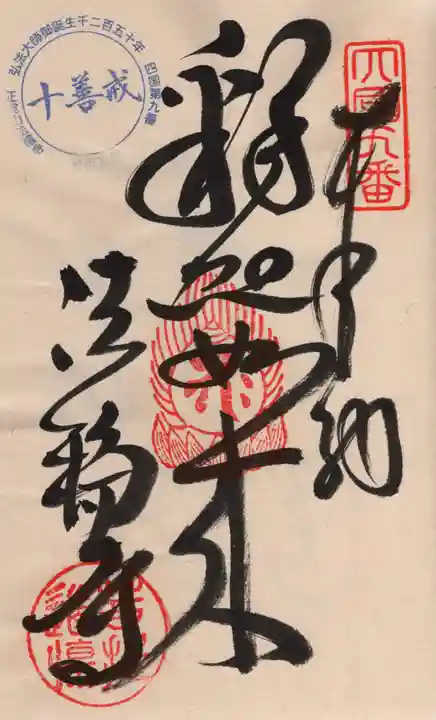 四國九番
奉納
釋迦如来
法輪寺
弘法大師御誕生千二百五十年
四国第九番
十善戒